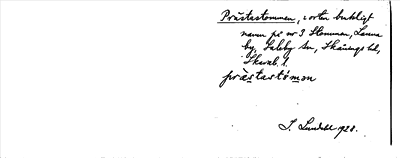 Prästastommen, i orten brukligt
namn på nr 3 Stommen, Lanna
by, Saleby sn, Skånings hd,
Skarab. l.
prästastömən
J. Lundahl 1928.